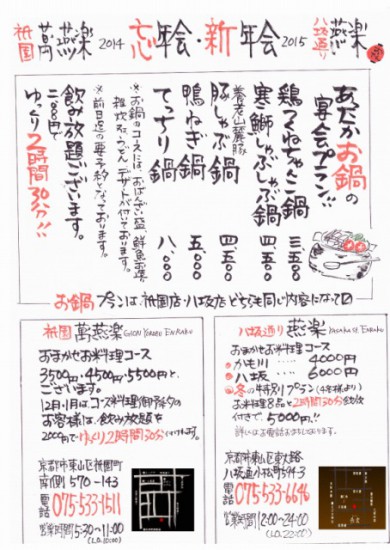 祇園 萬燕楽 2014 忘年会・新年会 2015 八坂通り 燕楽
あったかお鍋の
宴会プラン!!
鶏つくねちゃんこ鍋 三、五〇〇
寒鰤しゃぶしゃぶ鍋 四、五〇〇
養老山麓豚
豚しゃぶ鍋 四、五〇〇
鴨ねぎ鍋 五、〇〇〇
てっちり鍋 八、〇〇〇
※お鍋のコースには、おばんざい三種、鮮魚お造り
雑炊又はうどん、デザートが付いております。
※前日迄の要予約となっております。
飲み放題ございます。
ゆっくり2時間30分!!
お鍋プランは、祇園店・八坂店どちらも同じ内容になります
祇園 萬燕楽 GION YOROZU ENRAKU
おまかせお米料理コース
3500円・4500円・5500円と、
ございます。
12月・1月はコース料理御予約の
お客様は、飲み放題を
2000円でゆっくり2時間30分
京都市東山区祇園町
南側570-143
電話 075-533-1511
営業時間 5:30〜11:00
(L.O.10:00)
八坂通り 燕楽 Yasaka St Enraku
おまかせお米料理コース
・かも川 4000円
・八坂 6000円
・冬の特別プラン(4名様より)
お米料理8品と2時間飲放
付きで、5000円!!
詳しくはお電話お待ちしております。
京都市東山区東大路
八坂通小松町594-3
電話 075-533-6646
営業時間 12:00〜24:00
(L.O.23:00)